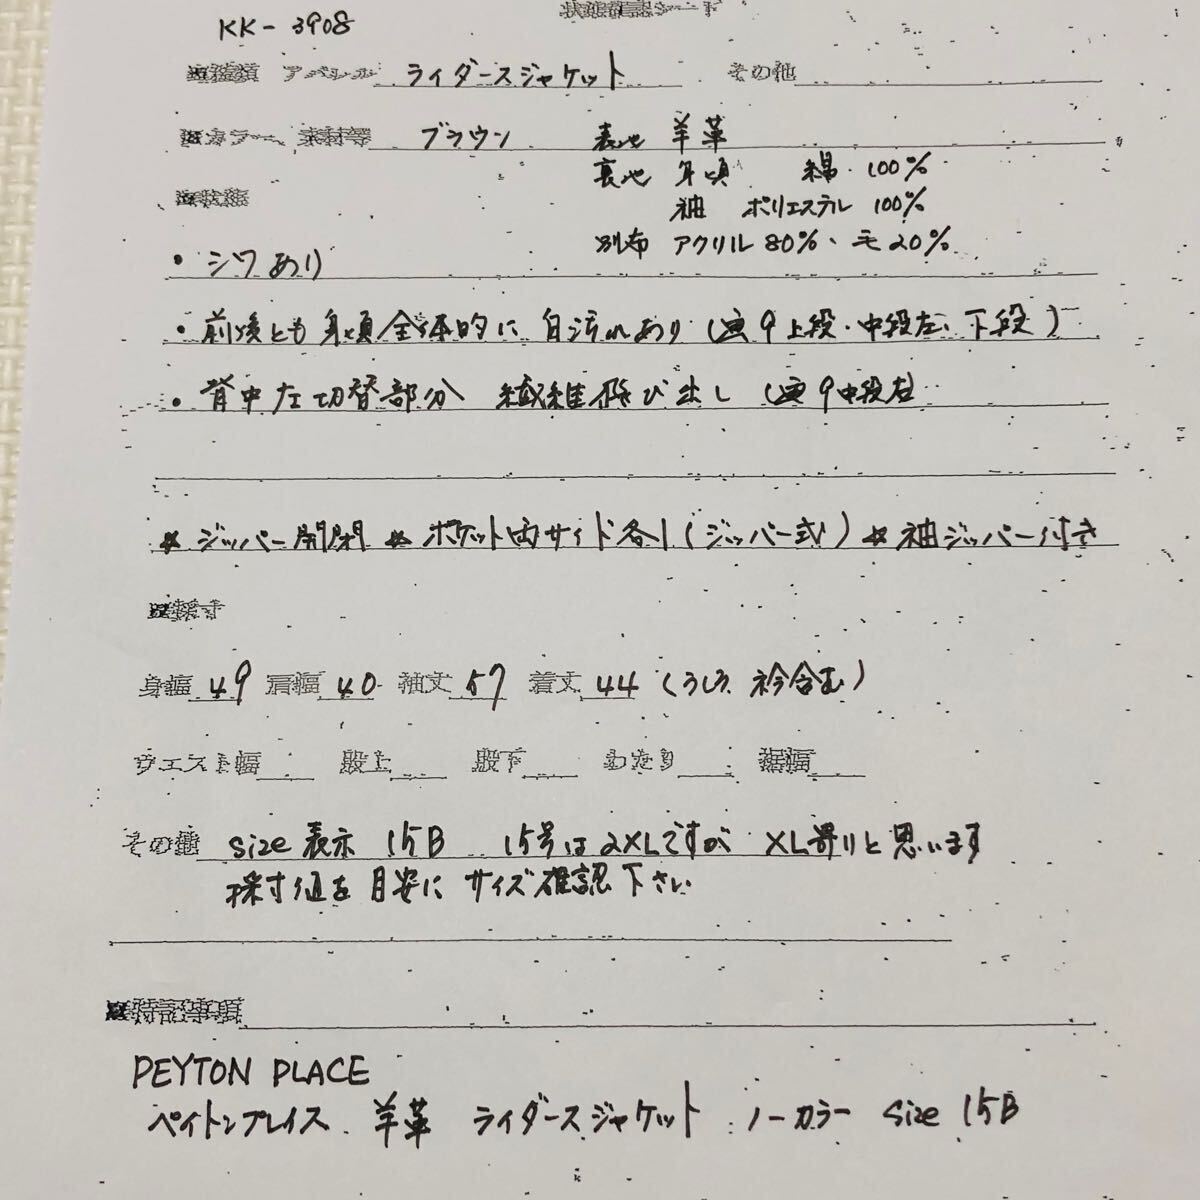 状態確認シート
KK-3908
■種類 アパレル ライダースジャケット その他
■カラー、素材等 ブラウン 表地 羊革
裏地 身頃 綿・100%
■状態
袖 ポリエステル 100%
別布 アクリル80%、毛20%
・シワあり
・前後とも身頃全体的に白汚れあり(画9上段・中段左、下段)
・背中左切替部分 繊維飛び出し (画9中段右
☆ジッパー開閉 ☆ポケット両サイド各1(ジッパー式) ☆袖ジッパー付き
■採寸
身幅 49 肩幅 40 袖丈 57 着丈 44 (うしろ 衿含む)
ウエスト幅 股上 股下 わたり 裾幅
その他 size 表示 15B 15号は2XLですが XL寄りと思います
採寸値を目安に サイズ確認下さい
■特記事項
PEYTON PLACE
ペイトンプレイス 羊革 ライダースジャケット ノーカラー size 15B